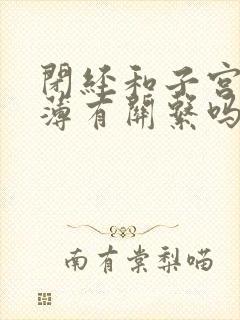 閉經和子宮
薄有關繫嗎
南有棠梨喵